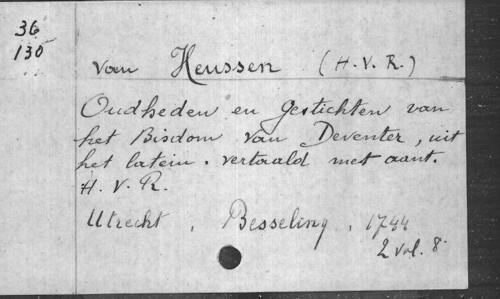 36
130
van Heussen (H. V. R.)
Oudheden en Gestichten van
het Bisdom van Deventer, uit
het latein. vertaald met aant.
H. V. R.
Utrecht, Besseling, 1744
2 vol. 8°